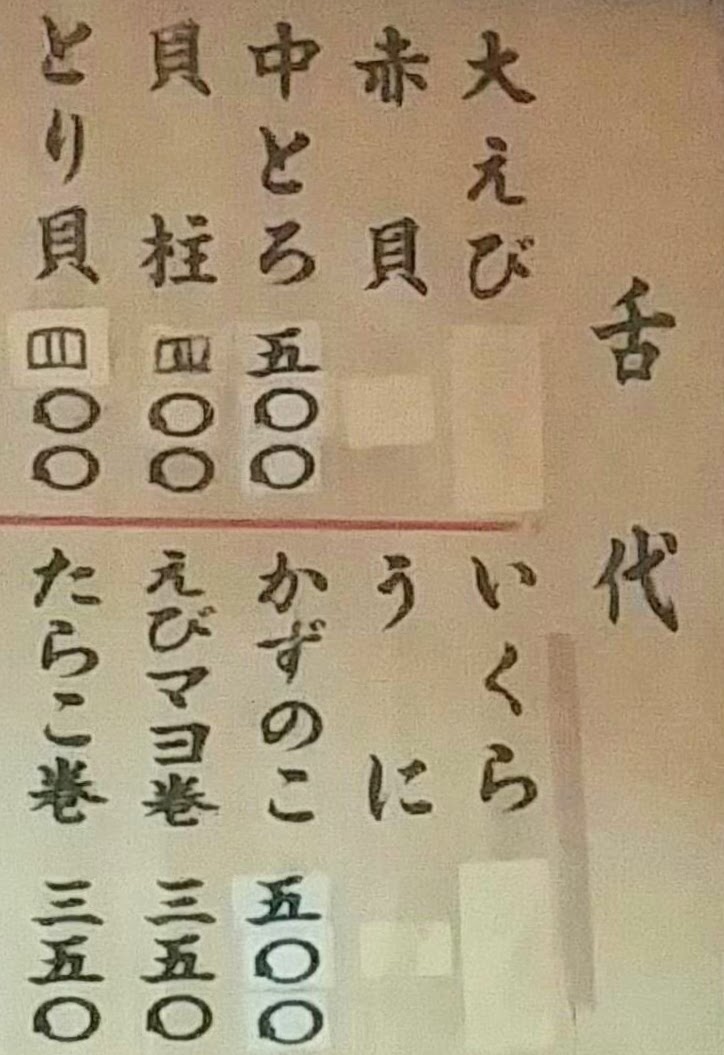 舌代
大えび
赤貝
中とろ 五〇〇
貝柱 四〇〇
とり貝 四〇〇
いくら
うに
かずのこ 五〇〇
えびマヨ巻 三五〇
たらこ巻 三五〇